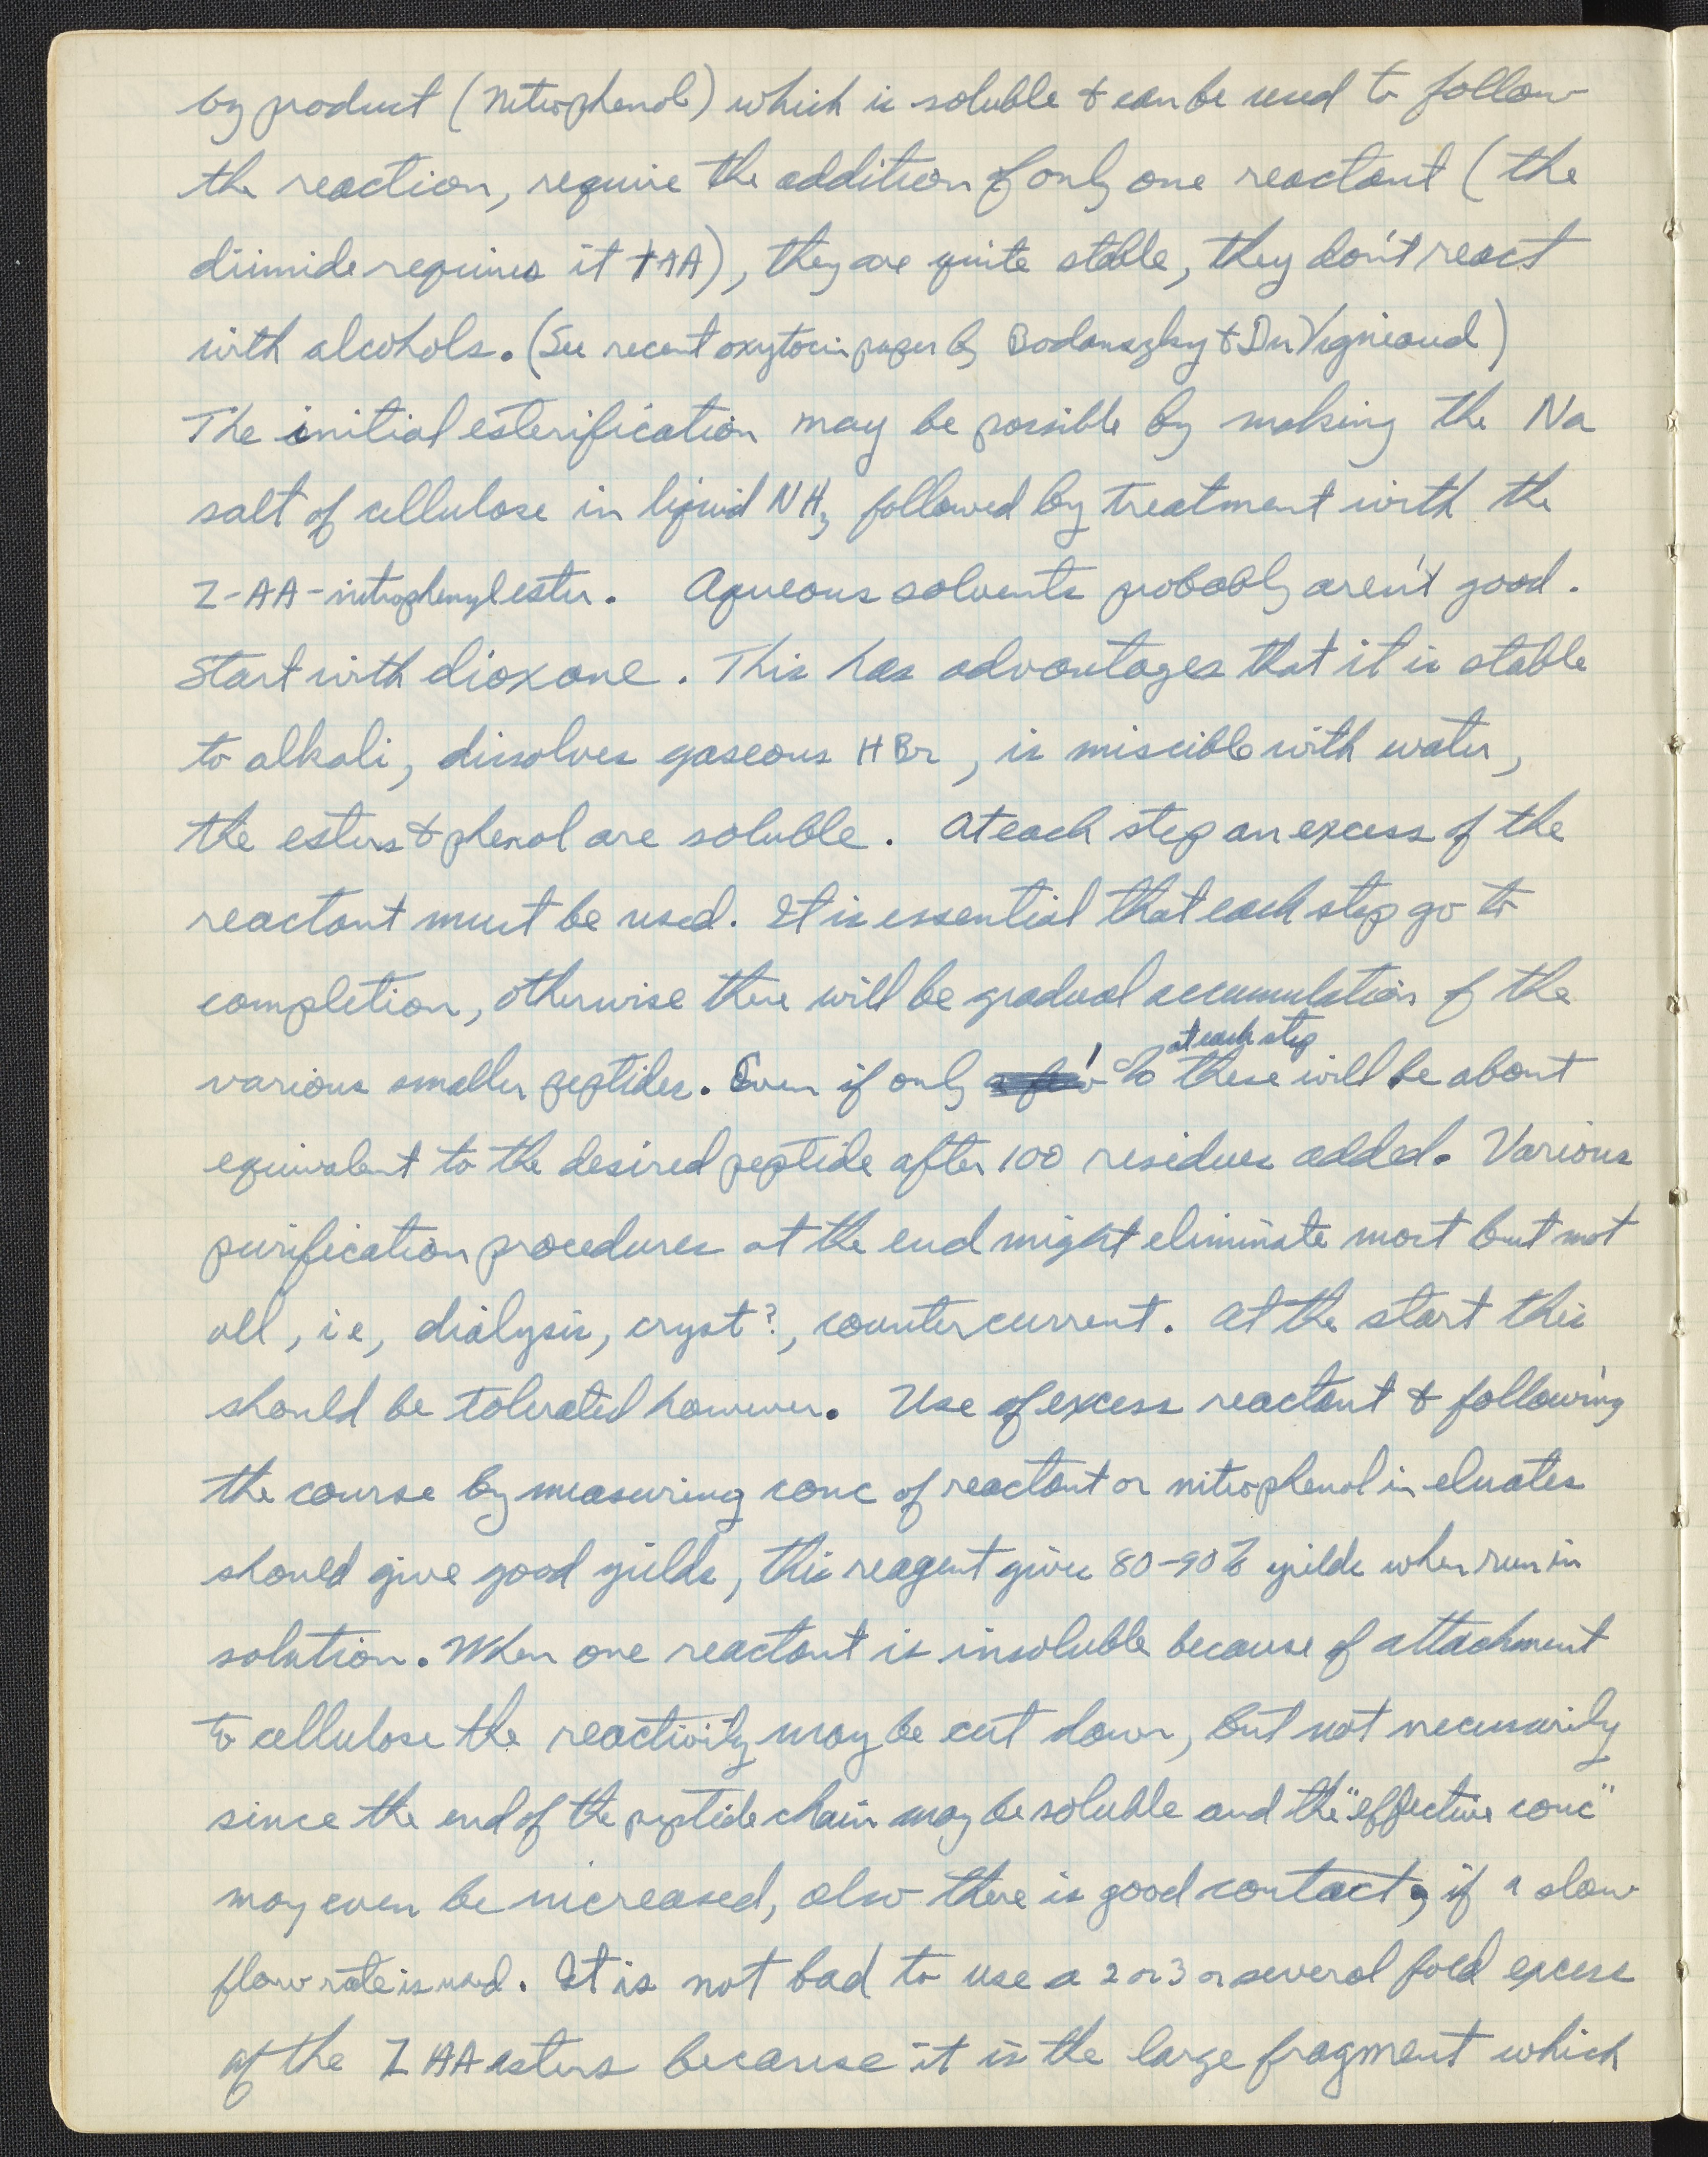 by product (nitrophenol) which is soluble & can be used to follow
the reaction, require the addition of only one reactant (the
diimide requires it + AA), they are quite stable, they don't react
with alcohols. (See recent oxytocin paper by Bodanszky & Du Vigneaud)
The initial esterification may be possible by making the Na
salt of cellulose in liquid NH3 followed by treatment with the
Z-AA-nitrophenylester. Aqueous solvents probably aren't good.
Start with dioxane. This has advantages that it is stable
to alkali, dissolves gaseous HBr, is miscible with water,
the esters & phenol are soluble. At each step an excess of the
reactant must be used. It is essential that each step go to
completion, otherwise there will be gradual accumulation of the
various smaller peptides. Even if only 1 % at each step these will be about
equivalent to the desired peptide after 100 residues added. Various
purification procedures at the end might eliminate most but not
all, i e, dialysis, cryst?, countercurrent. At the start this
should be tolerated however. Use of excess reactant & following
the course by measuring conc of reactant or nitrophenol in eluates
should give good yields, this reagent gives 80-90% yields when run in
solution. When one reactant is insoluble because of attachment
to cellulose the reactivity may be cut down, but not necessarily
since the end of the peptide chain may be soluble and the "effective conc"
may even be increased, also there is good contact, if a slow
flow rate is used. It is not bad to use a 2 or 3 or several fold excess
of the Z AA esters because it is the large fragment which